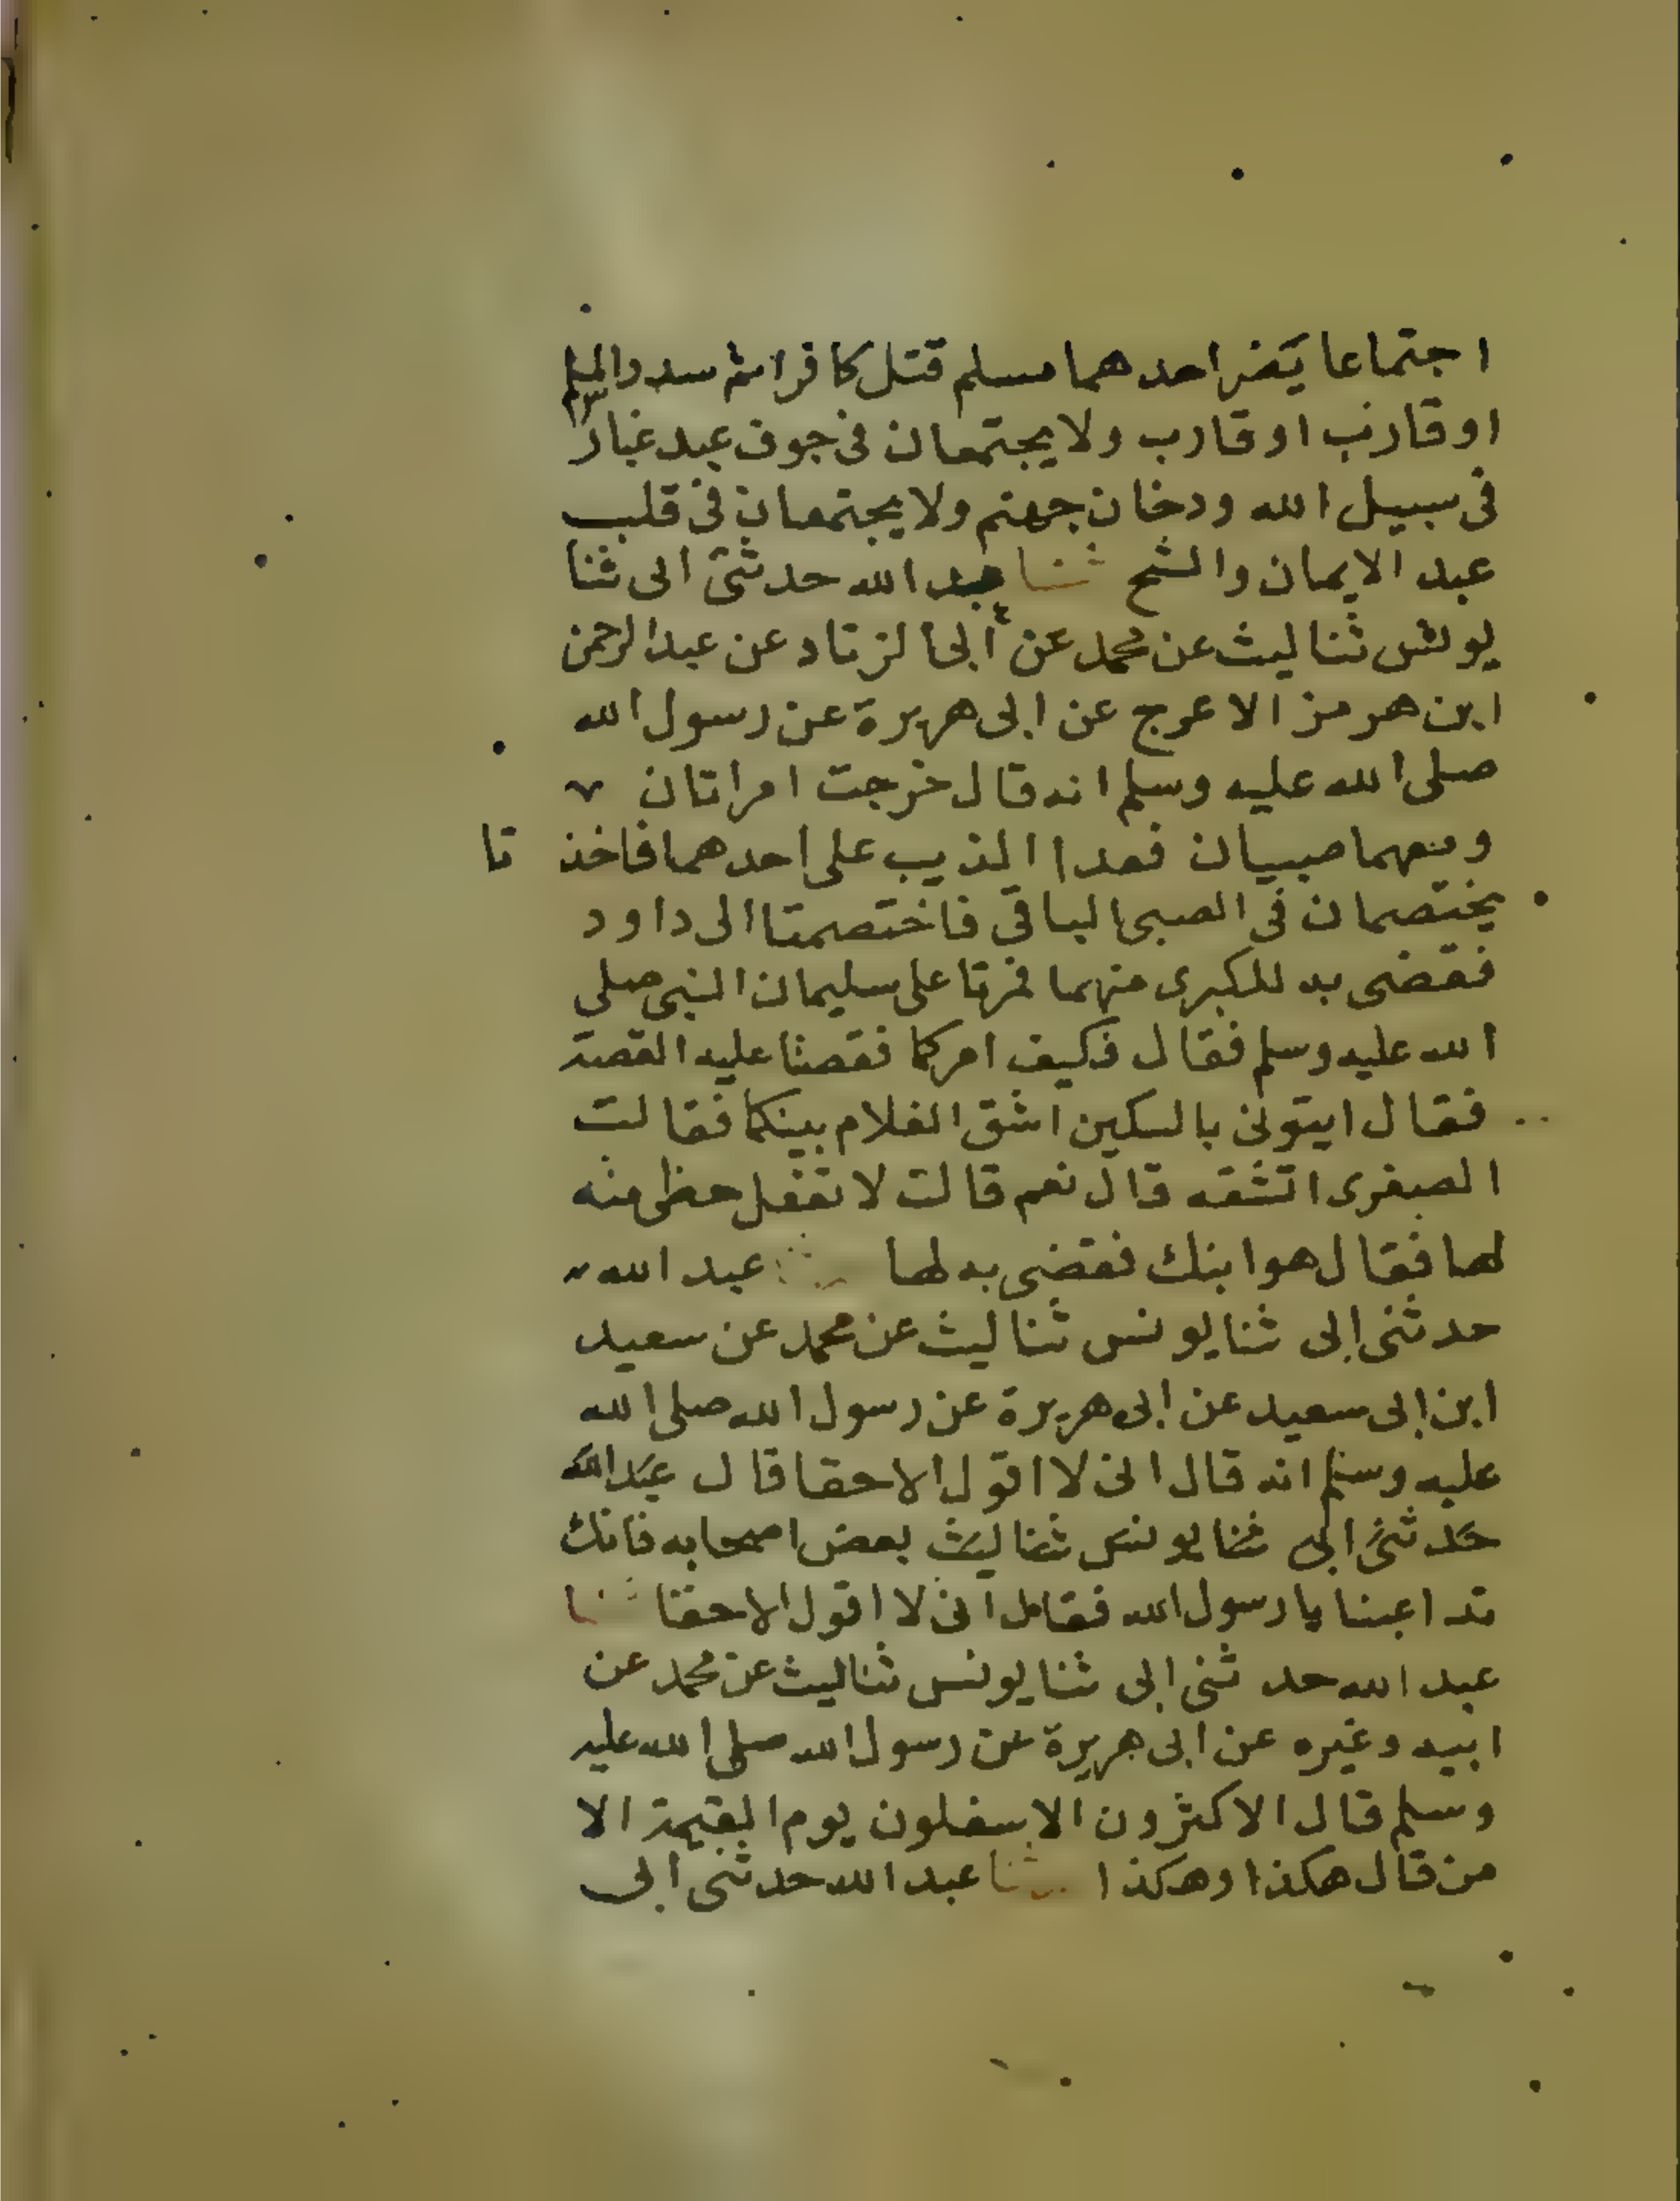 اجتماعا يضر احدهما مسلم قتل كافرا ثم سدد المسلم
او قارب او قارب ولا يجتمعان فى جوف عبد غبار
فى سبيل الله ودخان جهنم ولا يجتمعان فى قلب
عبد الايمان والشح ثنا عبد الله حدثنى ابى ثنا
يونس ثنا ليث عن محمد عن ابى الزناد عن عبد الرحمن
ابن هرمز الاعرج عن ابى هريرة عن رسول الله
صلى الله عليه وسلم انه قال خرجت امراتان
ومعهما صبيان فعدا الذيب على احدهما فاخذ تا
يختصمان فى الصبى الباقى فاختصمتا الى داود
فقضى به للكبرى منهما فمرتا على سليمان النبى صلى
الله عليه وسلم فقال فكيف امركما فقصتا عليه القصة
فقال ايتونى بالسكين اشق الغلام بينكما فقالت
الصغرى اتشقه قال نعم قالت لا تفعل حظى منه
لها فقال هو ابنك فقضى به لها ثنا عبد الله
حدثنى ابى ثنا يونس ثنا ليث عن محمد عن سعيد
ابن ابى سعيد عن ابى هريرة عن رسول الله صلى الله
عليه وسلم انه قال انى لا اقول الا حقا قال عبد الله
حدثنى ابى ثنا يونس ثنا ليث بعض اصحابه فانك
تداعبنا يا رسول الله فقال انى لا اقول الا حقا ثنا
عبد الله حدثنى ابى ثنا يونس ثنا ليث عن محمد عن
ابيه وغيره عن ابى هريرة عن رسول الله صلى الله عليه
وسلم قال الاكثرون الاسفلون يوم القيمة الا
من قال هكذا وهكذا ثنا عبد الله حدثنى ابى